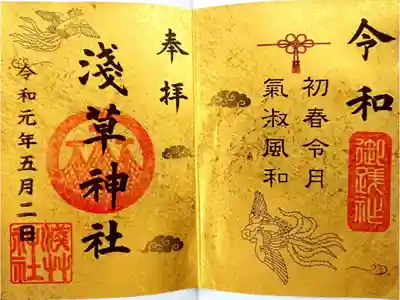 令和
御践祚
初春令月
氣淑風和
奉拝
淺草神社
令和元年五月二日
淺草神社